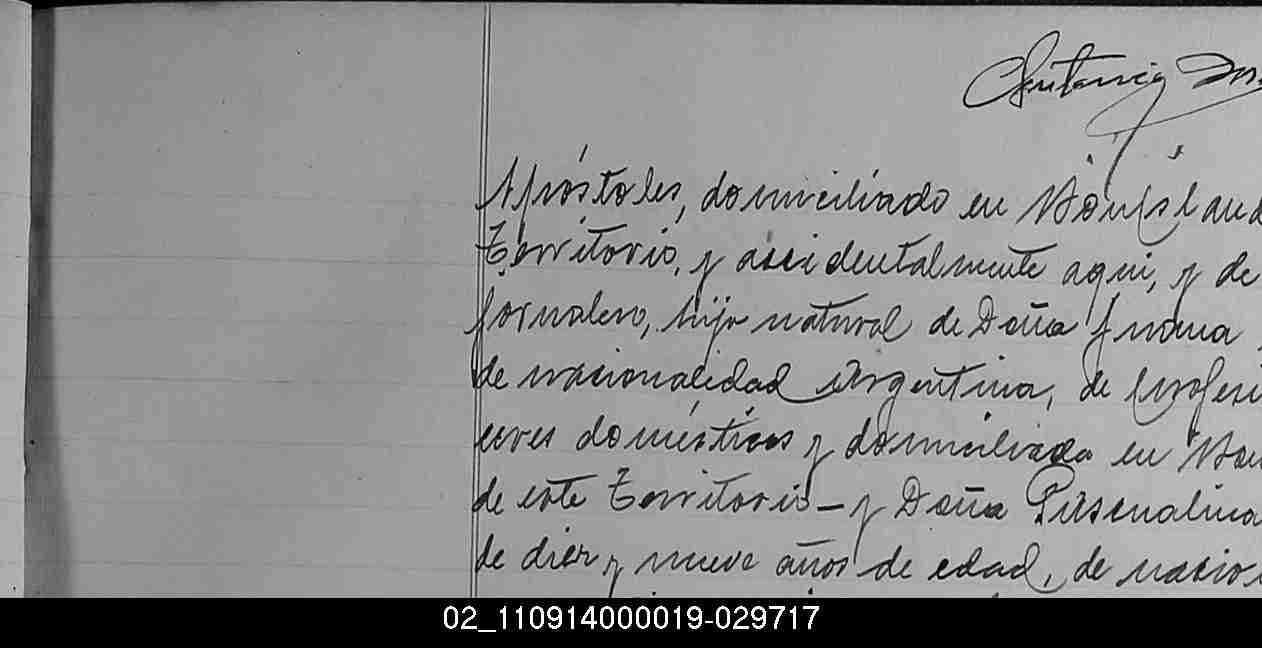 Apóstoles, domiciliado en
Territorio, y accidentalmente aqui, y de
jornalero, hijo natural de Doña Juana
de nacionalidad Argentina, de profesi
ceres domésticos y domiciliada en
de este Territorio – y Doña Pascualina
de diez y nueve años de edad, de nacio
02_110914000019-029717